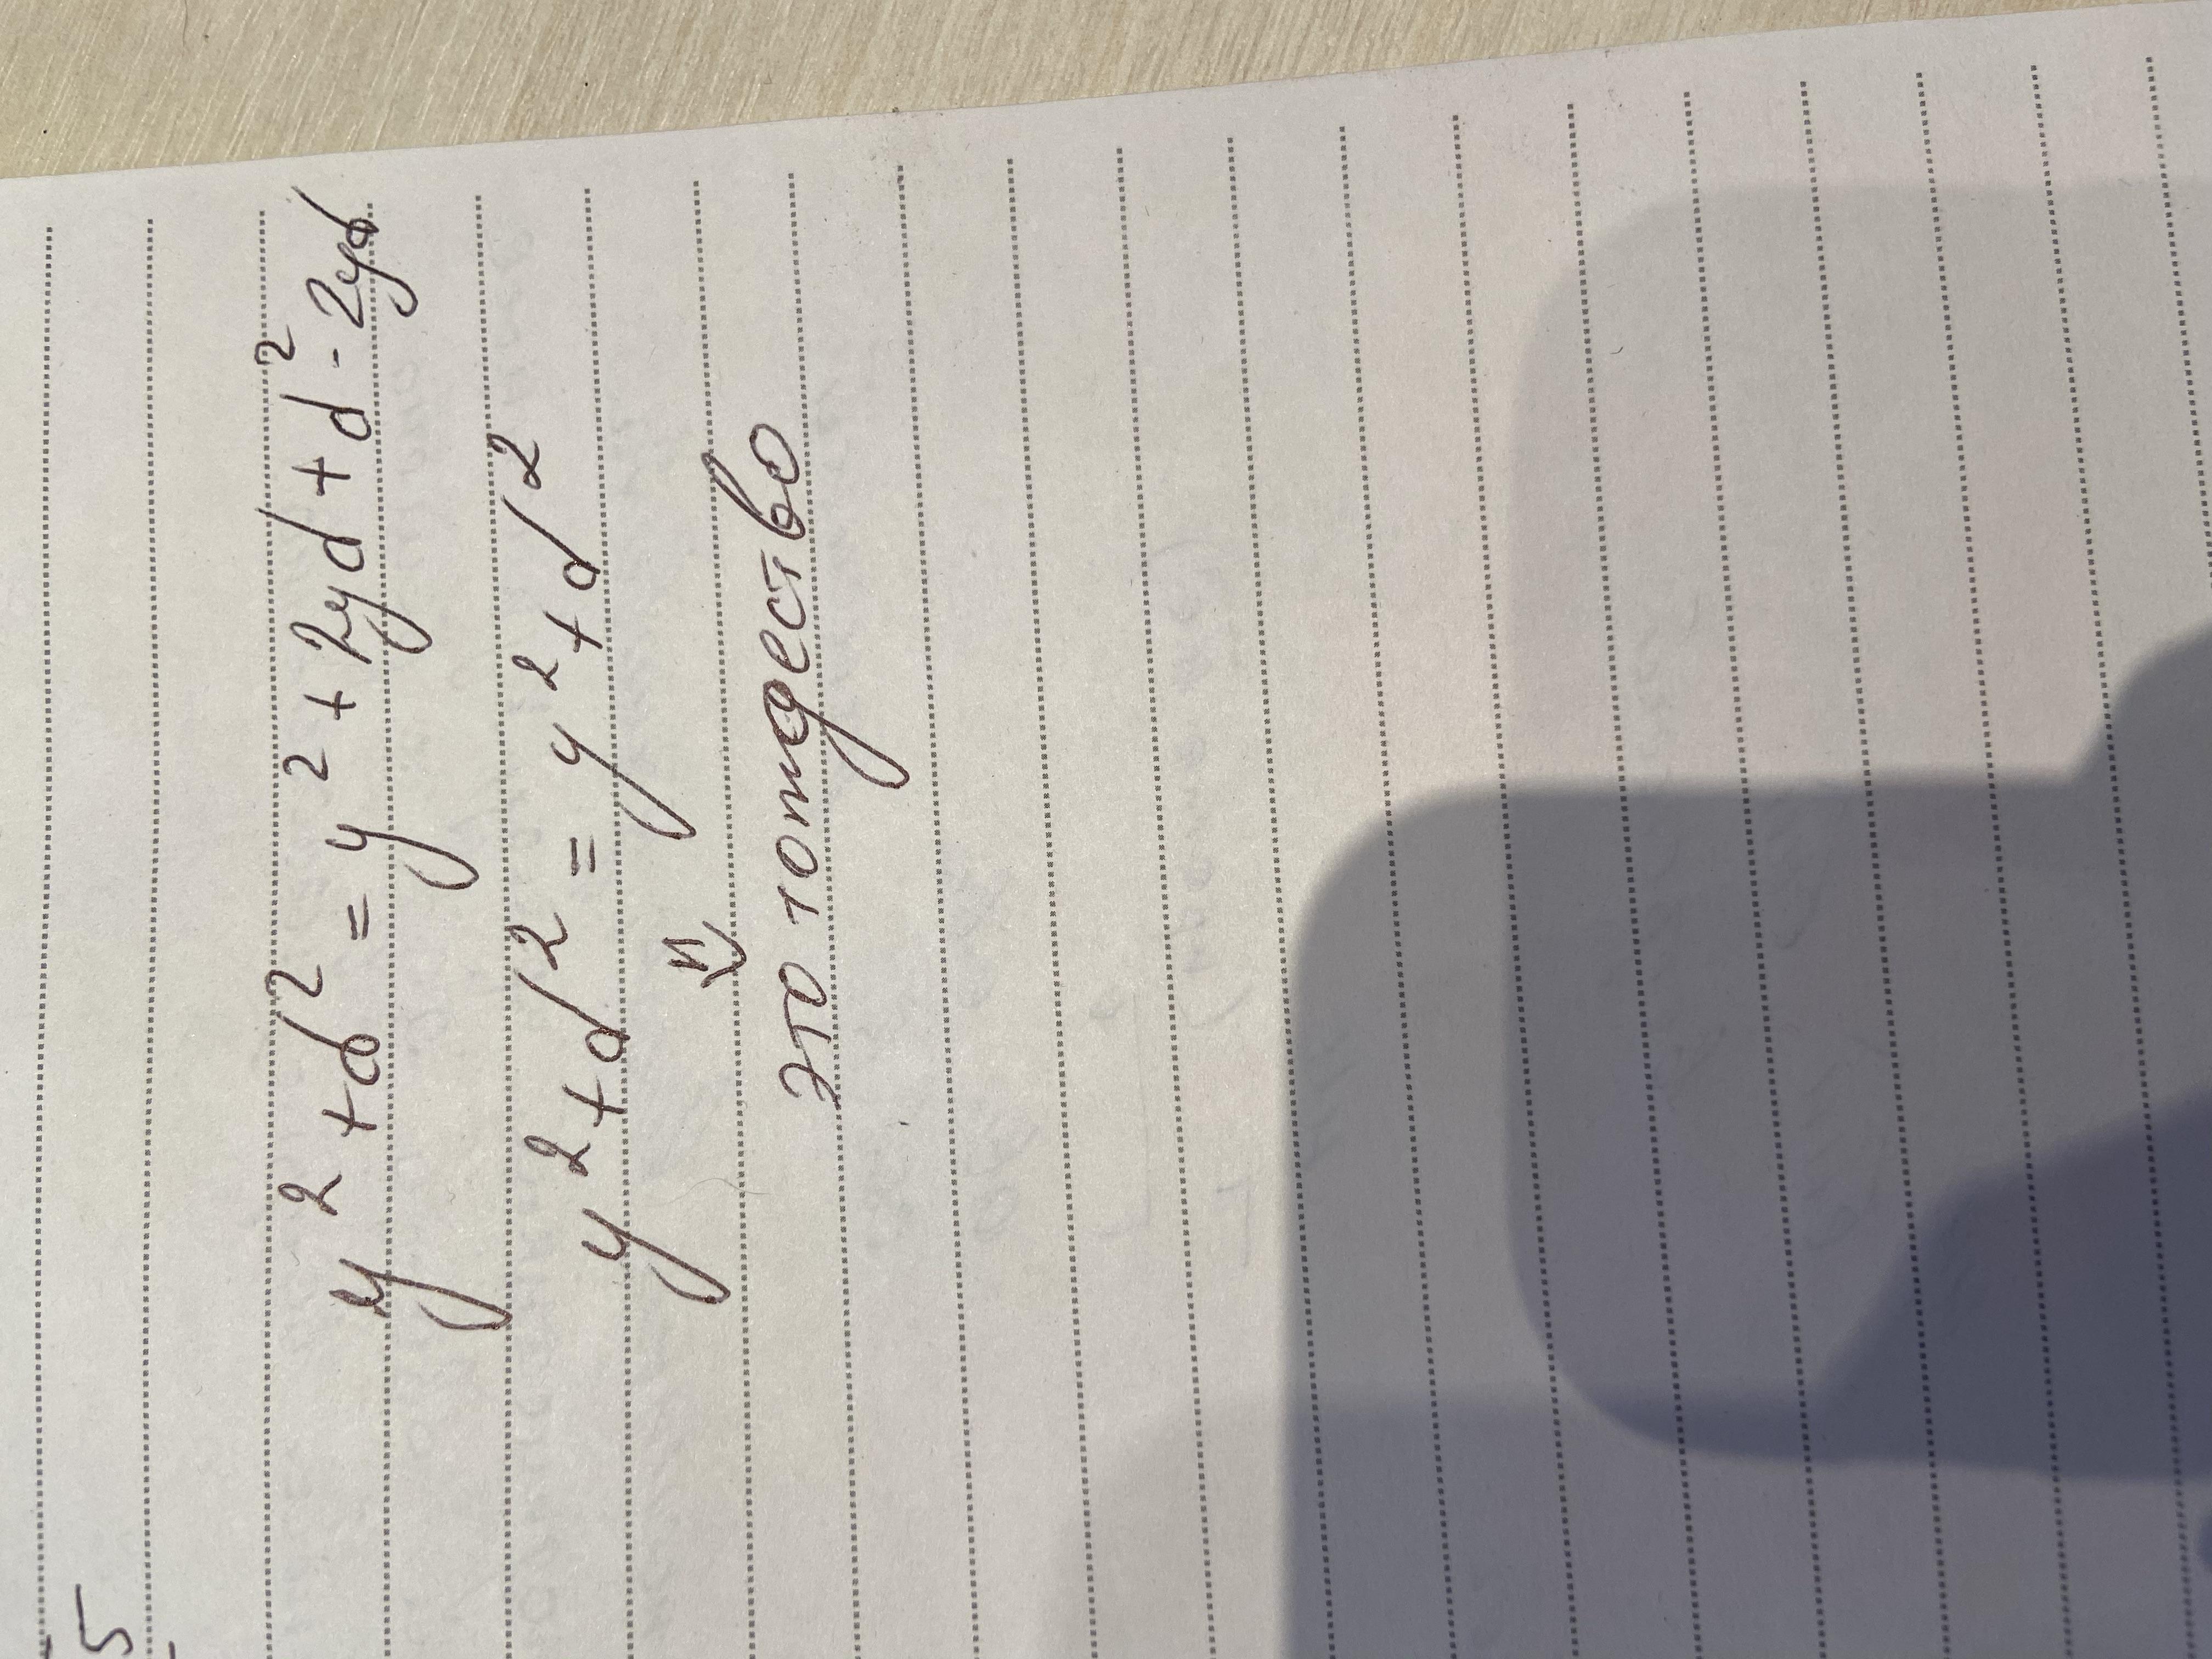 5
y² + d² = y² + 2yd + d² - 2yd
y² + d² = y² + d²
⇓
это тотдество